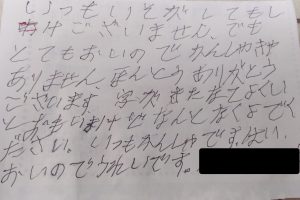 いつもいそがしてもし
けございません、でも
とてもおいのでかんしゃきゃ
ありません、ほんとうありがとう
ございます 字がきたなてよくい
とおもいまけどなんとなくよでく
ださい。いつもかんしゃです。はい、
おいのでうれいです。